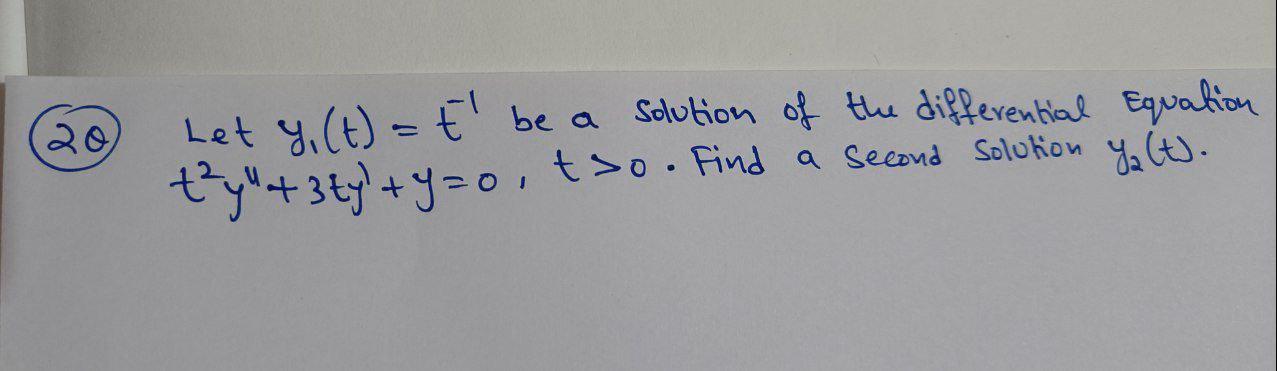 20 Let y₁(t) = t⁻¹ be a solution of the differential Equation
t²y'' + 3ty' + y = 0, t > 0. Find a second solution y₂(t).